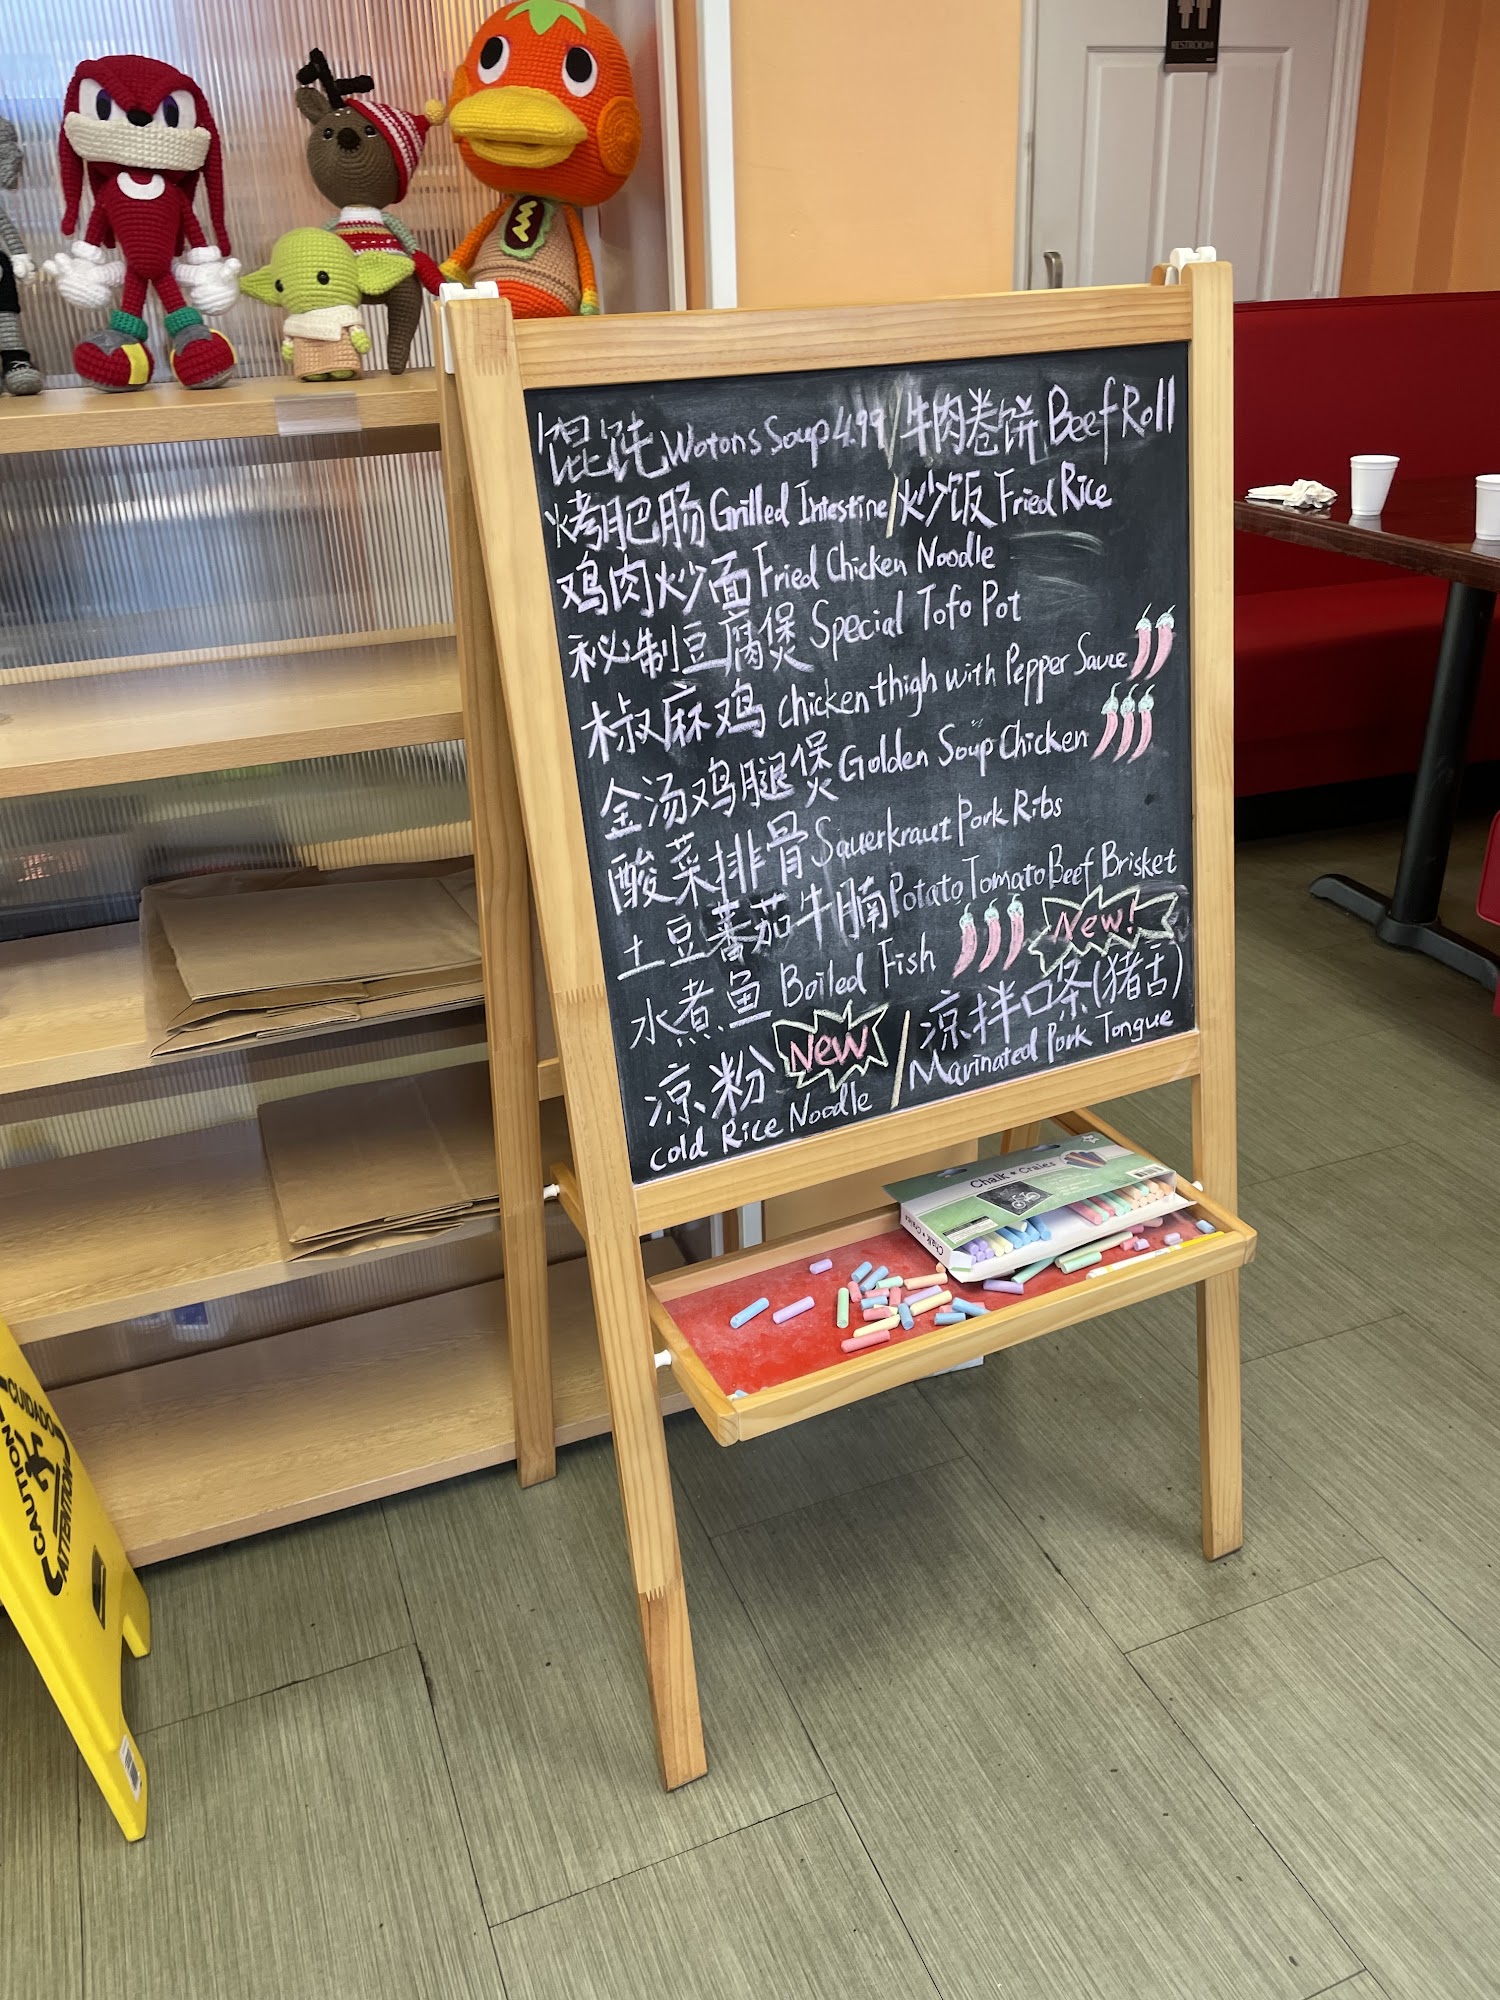 RESTROOM
馄饨 Wotons Soup 4.99 / 牛肉卷饼 Beef Roll
烤肥肠 Grilled Intestine / 炒饭 Fried Rice
鸡肉炒面 Fried Chicken Noodle
秘制豆腐煲 Special Tofo Pot
椒麻鸡 chicken thigh with Pepper Sauce
金汤鸡腿煲 Golden Soup Chicken
酸菜排骨 Sauerkraut Pork Ribs
土豆蕃茄牛腩 Potato Tomato Beef Brisket
水煮鱼 Boiled Fish New!
凉粉 New / 凉拌口条(猪舌)
cold Rice Noodle Marinated Pork Tongue
Chalk Crates
CUIDADO
CAUTION
ATTENTION